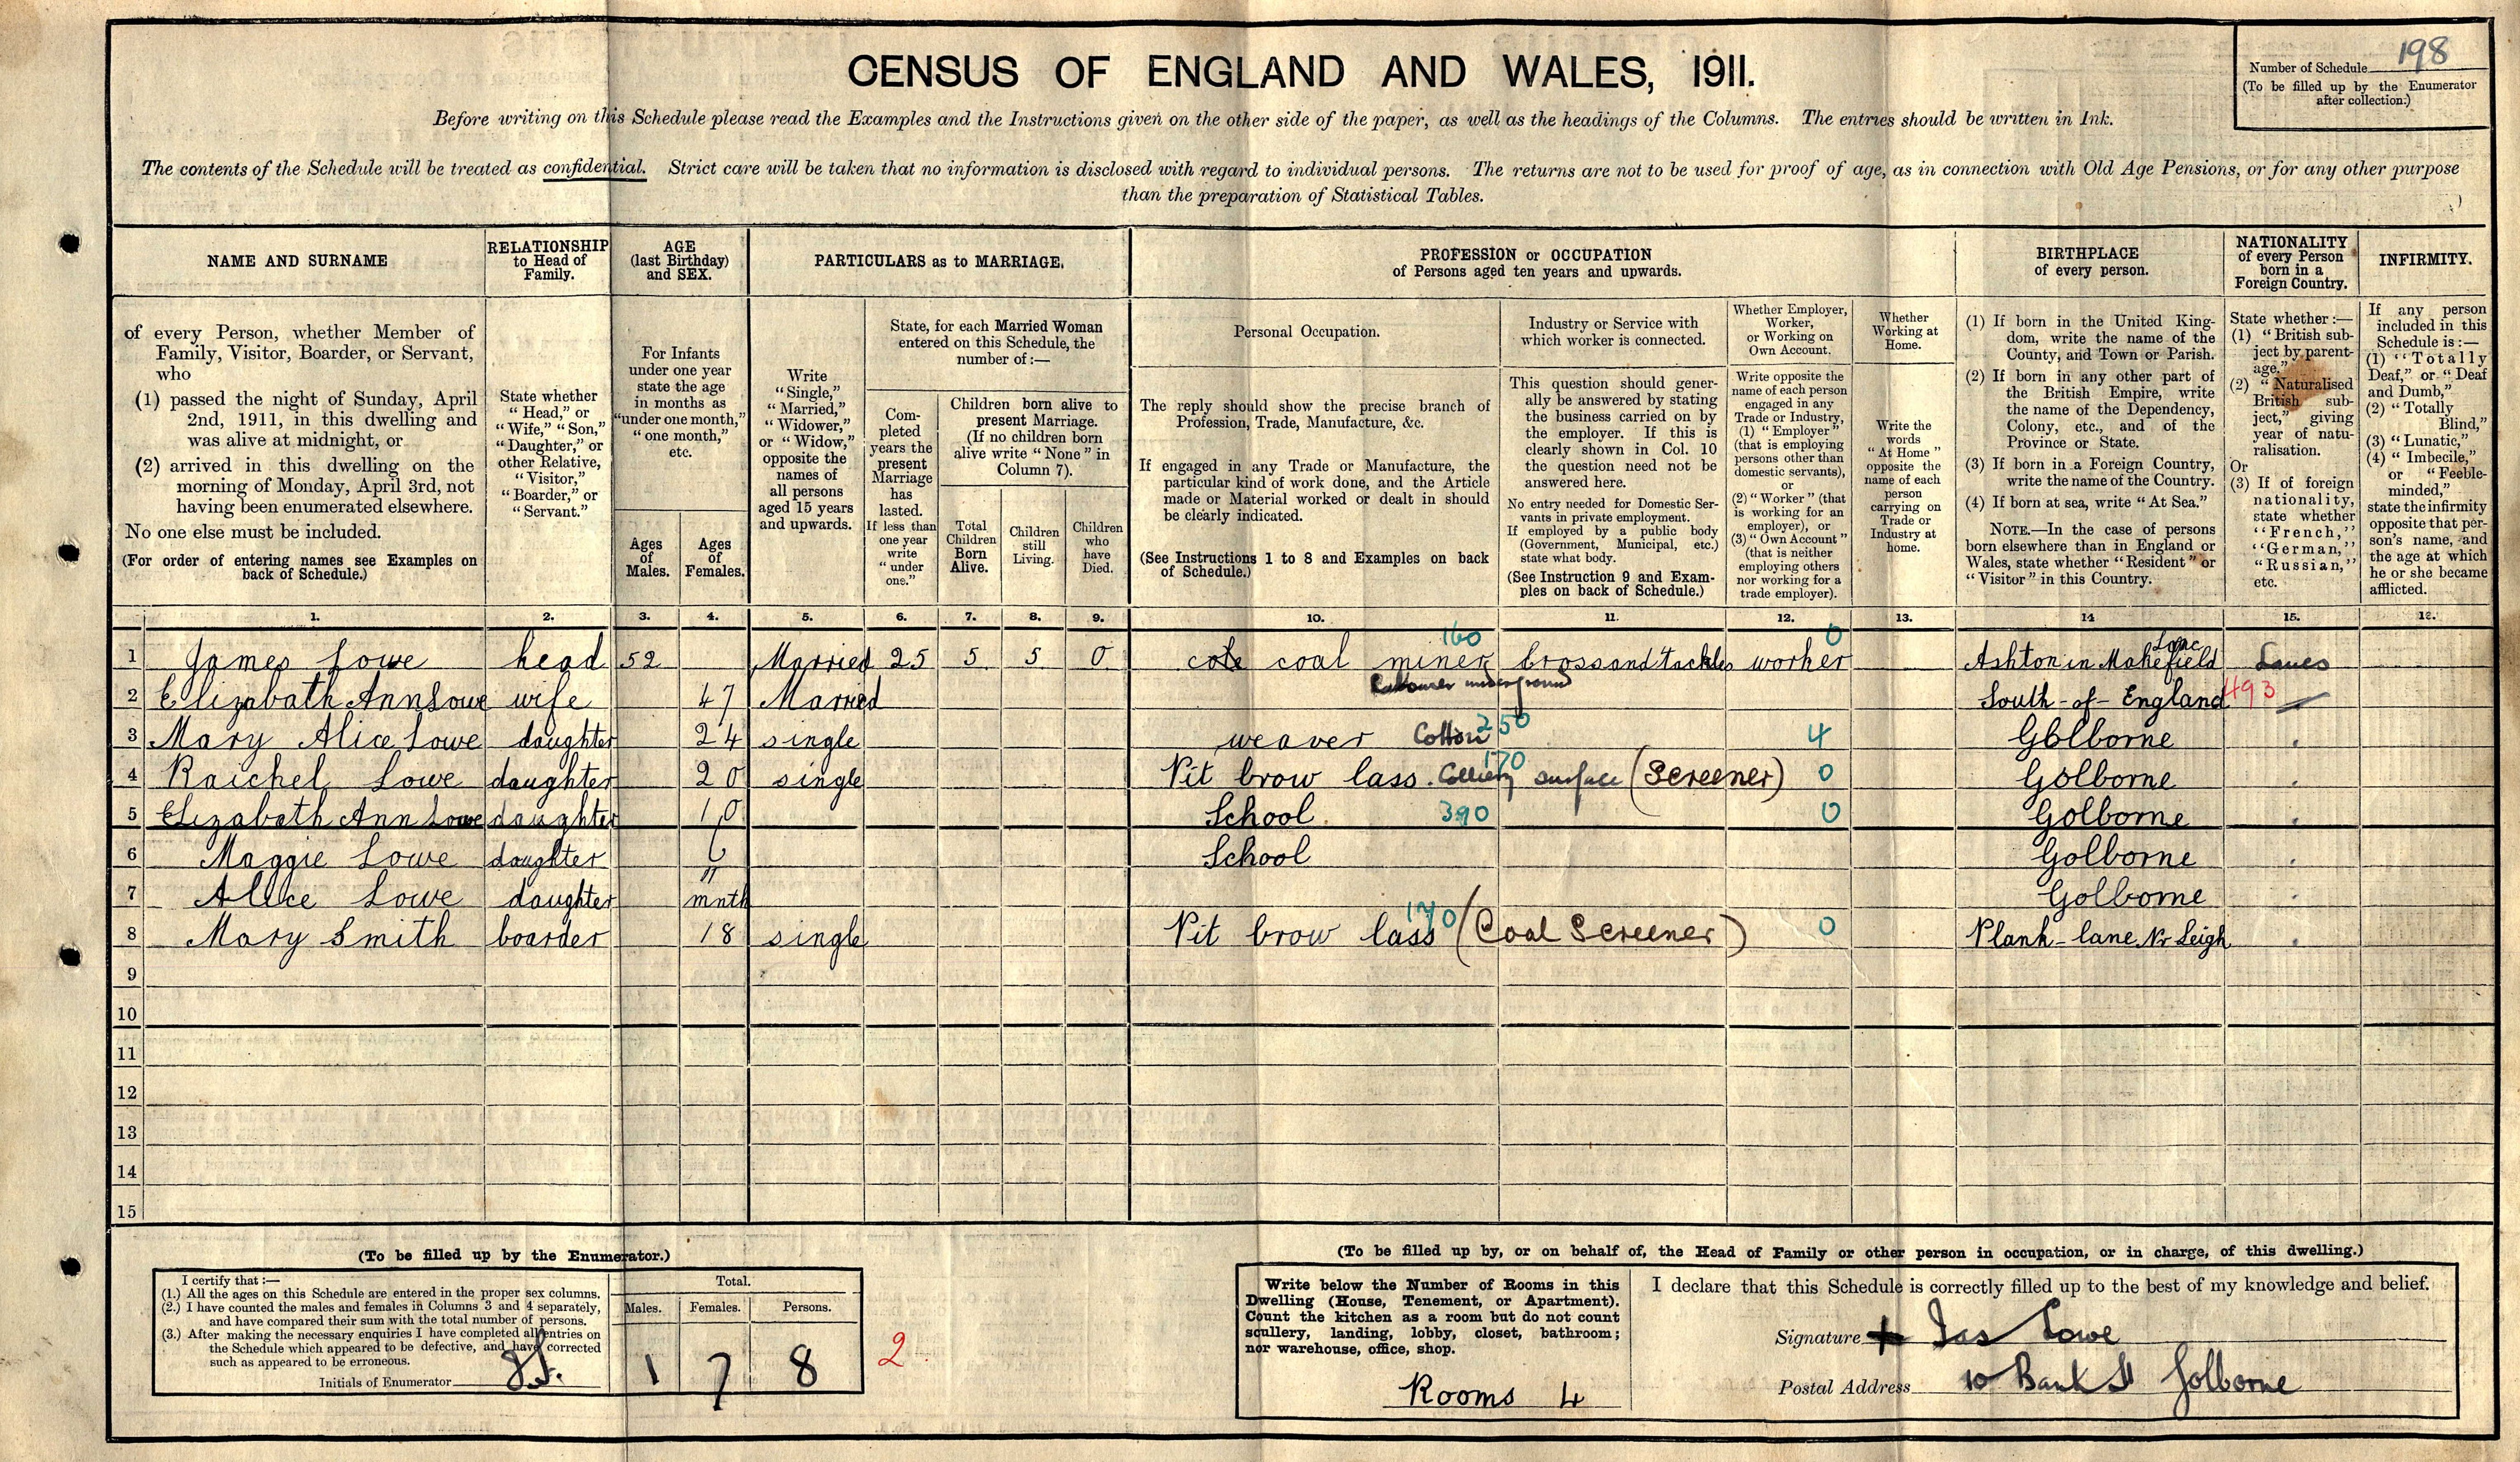 198
CENSUS OF ENGLAND AND WALES, 1911.
Number of Schedule
(To be filled up by the Enumerator
after collection.)
Before writing on this Schedule please read the Examples and the Instructions given on the other side of the paper, as well as the headings of the Columns. The entries should be written in Ink.
The contents of the Schedule will be treated as confidential. Strict care will be taken that no information is disclosed with regard to individual persons. The returns are not to be used for proof of age, as in connection with Old Age Pensions, or for any other purpose
than the preparation of Statistical Tables.
NAME AND SURNAME
of every Person, whether Member of
Family, Visitor, Boarder, or Servant,
who
(1) passed the night of Sunday, April
2nd, 1911, in this dwelling and
was alive at midnight, or
(2) arrived in this dwelling on the
morning of Monday, April 3rd, not
having been enumerated elsewhere.
No one else must be included.
(For order of entering names see Examples on
back of Schedule.)
RELATIONSHIP
to Head of
Family.
State whether
"Head," or
"Wife," "Son,"
"Daughter," or
other Relative,
"Visitor,"
"Boarder," or
"Servant."
AGE
(last Birthday)
and SEX.
For Infants
under one year
state the age
in months as
"under one month,"
"one month,"
etc.
Ages
of
Males.
Ages
of
Females.
PARTICULARS as to MARRIAGE.
Write
"Single,"
"Married,"
"Widower,"
or "Widow,"
opposite the
names of
all persons
aged 15 years
and upwards.
State, for each Married Woman
entered on this Schedule, the
number of:—
Com-
pleted
years the
present
Marriage
has
lasted.
If less than
one year
write
"under
one."
Children born alive to
present Marriage.
(If no children born
alive write "None" in
Column 7).
Total
Children
Born
Alive.
Children
still
Living.
Children
who
have
Died.
PROFESSION or OCCUPATION
of Persons aged ten years and upwards.
Personal Occupation.
The reply should show the precise branch of
Profession, Trade, Manufacture, &c.
If engaged in any Trade or Manufacture, the
particular kind of work done, and the Article
made or Material worked or dealt in should
be clearly indicated.
(See Instructions 1 to 8 and Examples on back
of Schedule.)
Industry or Service with
which worker is connected.
This question should gener-
ally be answered by stating
the business carried on by
the employer. If this is
clearly shown in Col. 10
the question need not be
answered here.
No entry needed for Domestic Ser-
vants in private employment.
If employed by a public body
(Government, Municipal, etc.)
state what body.
(See Instruction 9 and Exam-
ples on back of Schedule.)
Whether Employer,
Worker,
or Working on
Own Account.
Write opposite the
name of each person
engaged in any
Trade or Industry,
(1) "Employer"
(that is employing
persons other than
domestic servants),
or
(2) "Worker" (that
is working for an
employer), or
(3) "Own Account"
(that is neither
employing others
nor working for a
trade employer).
Whether
Working at
Home.
Write the
words
"At Home"
opposite the
name of each
person
carrying on
Trade or
Industry at
home.
BIRTHPLACE
of every person.
(1) If born in the United King-
dom, write the name of the
County, and Town or Parish.
(2) If born in any other part of
the British Empire, write
the name of the Dependency,
Colony, etc., and of the
Province or State.
(3) If born in a Foreign Country,
write the name of the Country.
(4) If born at sea, write "At Sea."
NOTE.—In the case of persons
born elsewhere than in England or
Wales, state whether "Resident" or
"Visitor" in this Country.
NATIONALITY
of every Person
born in a
Foreign Country.
State whether:—
(1) "British sub-
ject by parent-
age."
(2) "Naturalised
British sub-
ject," giving
year of natu-
ralisation.
Or
(3) If of foreign
nationality,
state whether
"French,"
"German,"
"Russian,"
etc.
INFIRMITY.
If any person
included in this
Schedule is:—
(1) "Totally
Deaf," or "Deaf
and Dumb,"
(2) "Totally
Blind,"
(3) "Lunatic,"
(4) "Imbecile,"
or "Feeble-
minded,"
state the infirmity
opposite that per-
son's name, and
the age at which
he or she became
afflicted.
1. 2. 3. 4. 5. 6. 7. 8. 9. 10. 11. 12. 13. 14 15. 16.
160 0 Lanc
1 James Lowe head 52 Married 25 5 5 0 cole coal miner brossandtackles worker Ashton in Makefield Lancs
Labourer underground
2 Elizabath Ann Lowe wife 47 Married South-of-England 493
3 Mary Alice Lowe daughter 24 single weaver Cotton 250 4 Golborne
4 Raichel Lowe daughter 20 single Pit brow lass. Colliery surface (Screener) 170 0 Golborne
5 Elizabath Ann Lowe daughter 10 School 390 0 Golborne
6 Maggie Lowe daughter 6 School Golborne
7 Alice Lowe daughter 11 mnth Golborne
8 Mary Smith boarder 18 single Pit brow lass (Coal Screener) 170 0 Plank-lane Nr Leigh
9
10
11
12
13
14
15
(To be filled up by the Enumerator.)
I certify that:—
(1.) All the ages on this Schedule are entered in the proper sex columns.
(2.) I have counted the males and females in Columns 3 and 4 separately,
and have compared their sum with the total number of persons.
(3.) After making the necessary enquiries I have completed all entries on
the Schedule which appeared to be defective, and have corrected
such as appeared to be erroneous.
Initials of Enumerator
Total.
Males. Females. Persons.
1 7 8
2
(To be filled up by, or on behalf of, the Head of Family or other person in occupation, or in charge, of this dwelling.)
Write below the Number of Rooms in this
Dwelling (House, Tenement, or Apartment).
Count the kitchen as a room but do not count
scullery, landing, lobby, closet, bathroom;
nor warehouse, office, shop.
Rooms 4
I declare that this Schedule is correctly filled up to the best of my knowledge and belief.
Signature Jas Lowe
Postal Address 10 Bank St Golborne